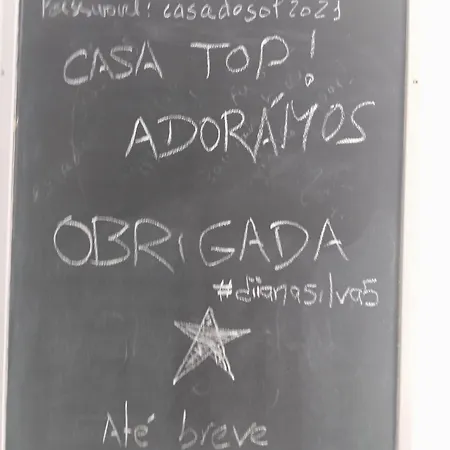 Password: casadosol2021
CASA TOP!
ADORÁMOS
OBRIGADA
#diianasilva5
Até breve